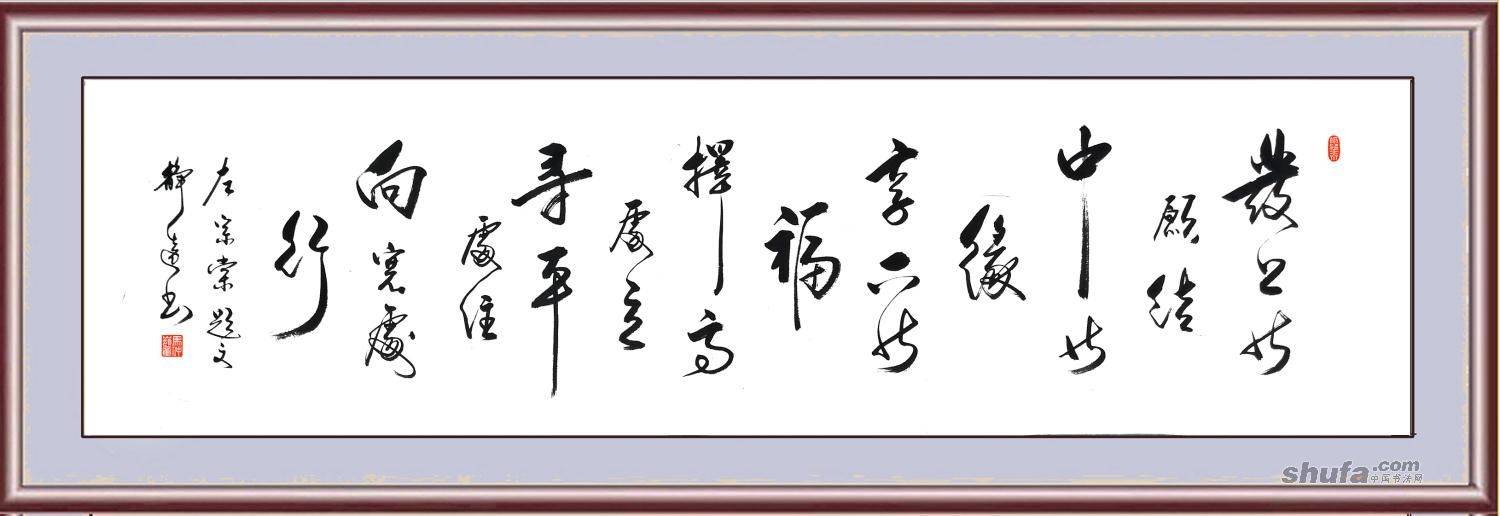 發上等
願結
中等
緣
享下等
福
擇高
處立
尋平
處住
向寬處
行
左宗棠題文
靜遠书
shufa.com
中国书法网